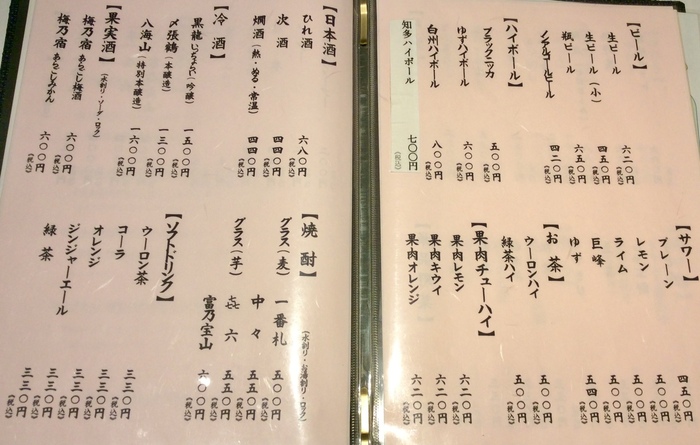 【ビール】
生ビール 六二〇円(税込)
生ビール(小) 四五〇円(税込)
瓶ビール 六五〇円(税込)
ノンアルコールビール 四二〇円(税込)
【ハイボール】
ブラックニッカ 五〇〇円(税込)
ゆずハイボール 六〇〇円(税込)
白州ハイボール 八〇〇円(税込)
知多ハイボール 七〇〇円(税込)
【サワー】
プレーン 四五〇円(税込)
レモン 五〇〇円(税込)
ライム 五〇〇円(税込)
巨峰 五〇〇円(税込)
ゆず 五四〇円(税込)
【お茶】
ウーロンハイ 五〇〇円(税込)
緑茶ハイ 五〇〇円(税込)
【果肉チューハイ】
果肉レモン 六二〇円(税込)
果肉キウイ 六二〇円(税込)
果肉オレンジ 六二〇円(税込)
【日本酒】
ひれ酒 六八〇円(税込)
次酒 四四〇円(税込)
燗酒(熱・ぬる・常温) 四四〇円(税込)
【冷酒】
黒龍 いっちょらい(吟醸) 一五〇〇円(税込)
〆張鶴(本醸造) 一三〇〇円(税込)
八海山(特別本醸造) 一六〇〇円(税込)
【果実酒】(水割り・ソーダ・ロック)
梅乃宿 あらごし梅酒 六〇〇円(税込)
梅乃宿 あらごしみかん 六〇〇円(税込)
【焼酎】(水割り・お湯割り・ロック)
グラス(麦) 一番札 五〇〇円(税込)
中々 五五〇円(税込)
グラス(芋) 㐂六 五五〇円(税込)
富乃宝山 六〇〇円(税込)
【ソフトドリンク】
ウーロン茶 三三〇円(税込)
コーラ 三三〇円(税込)
オレンジ 三三〇円(税込)
ジンジャーエール 三三〇円(税込)
緑茶 三三〇円(税込)